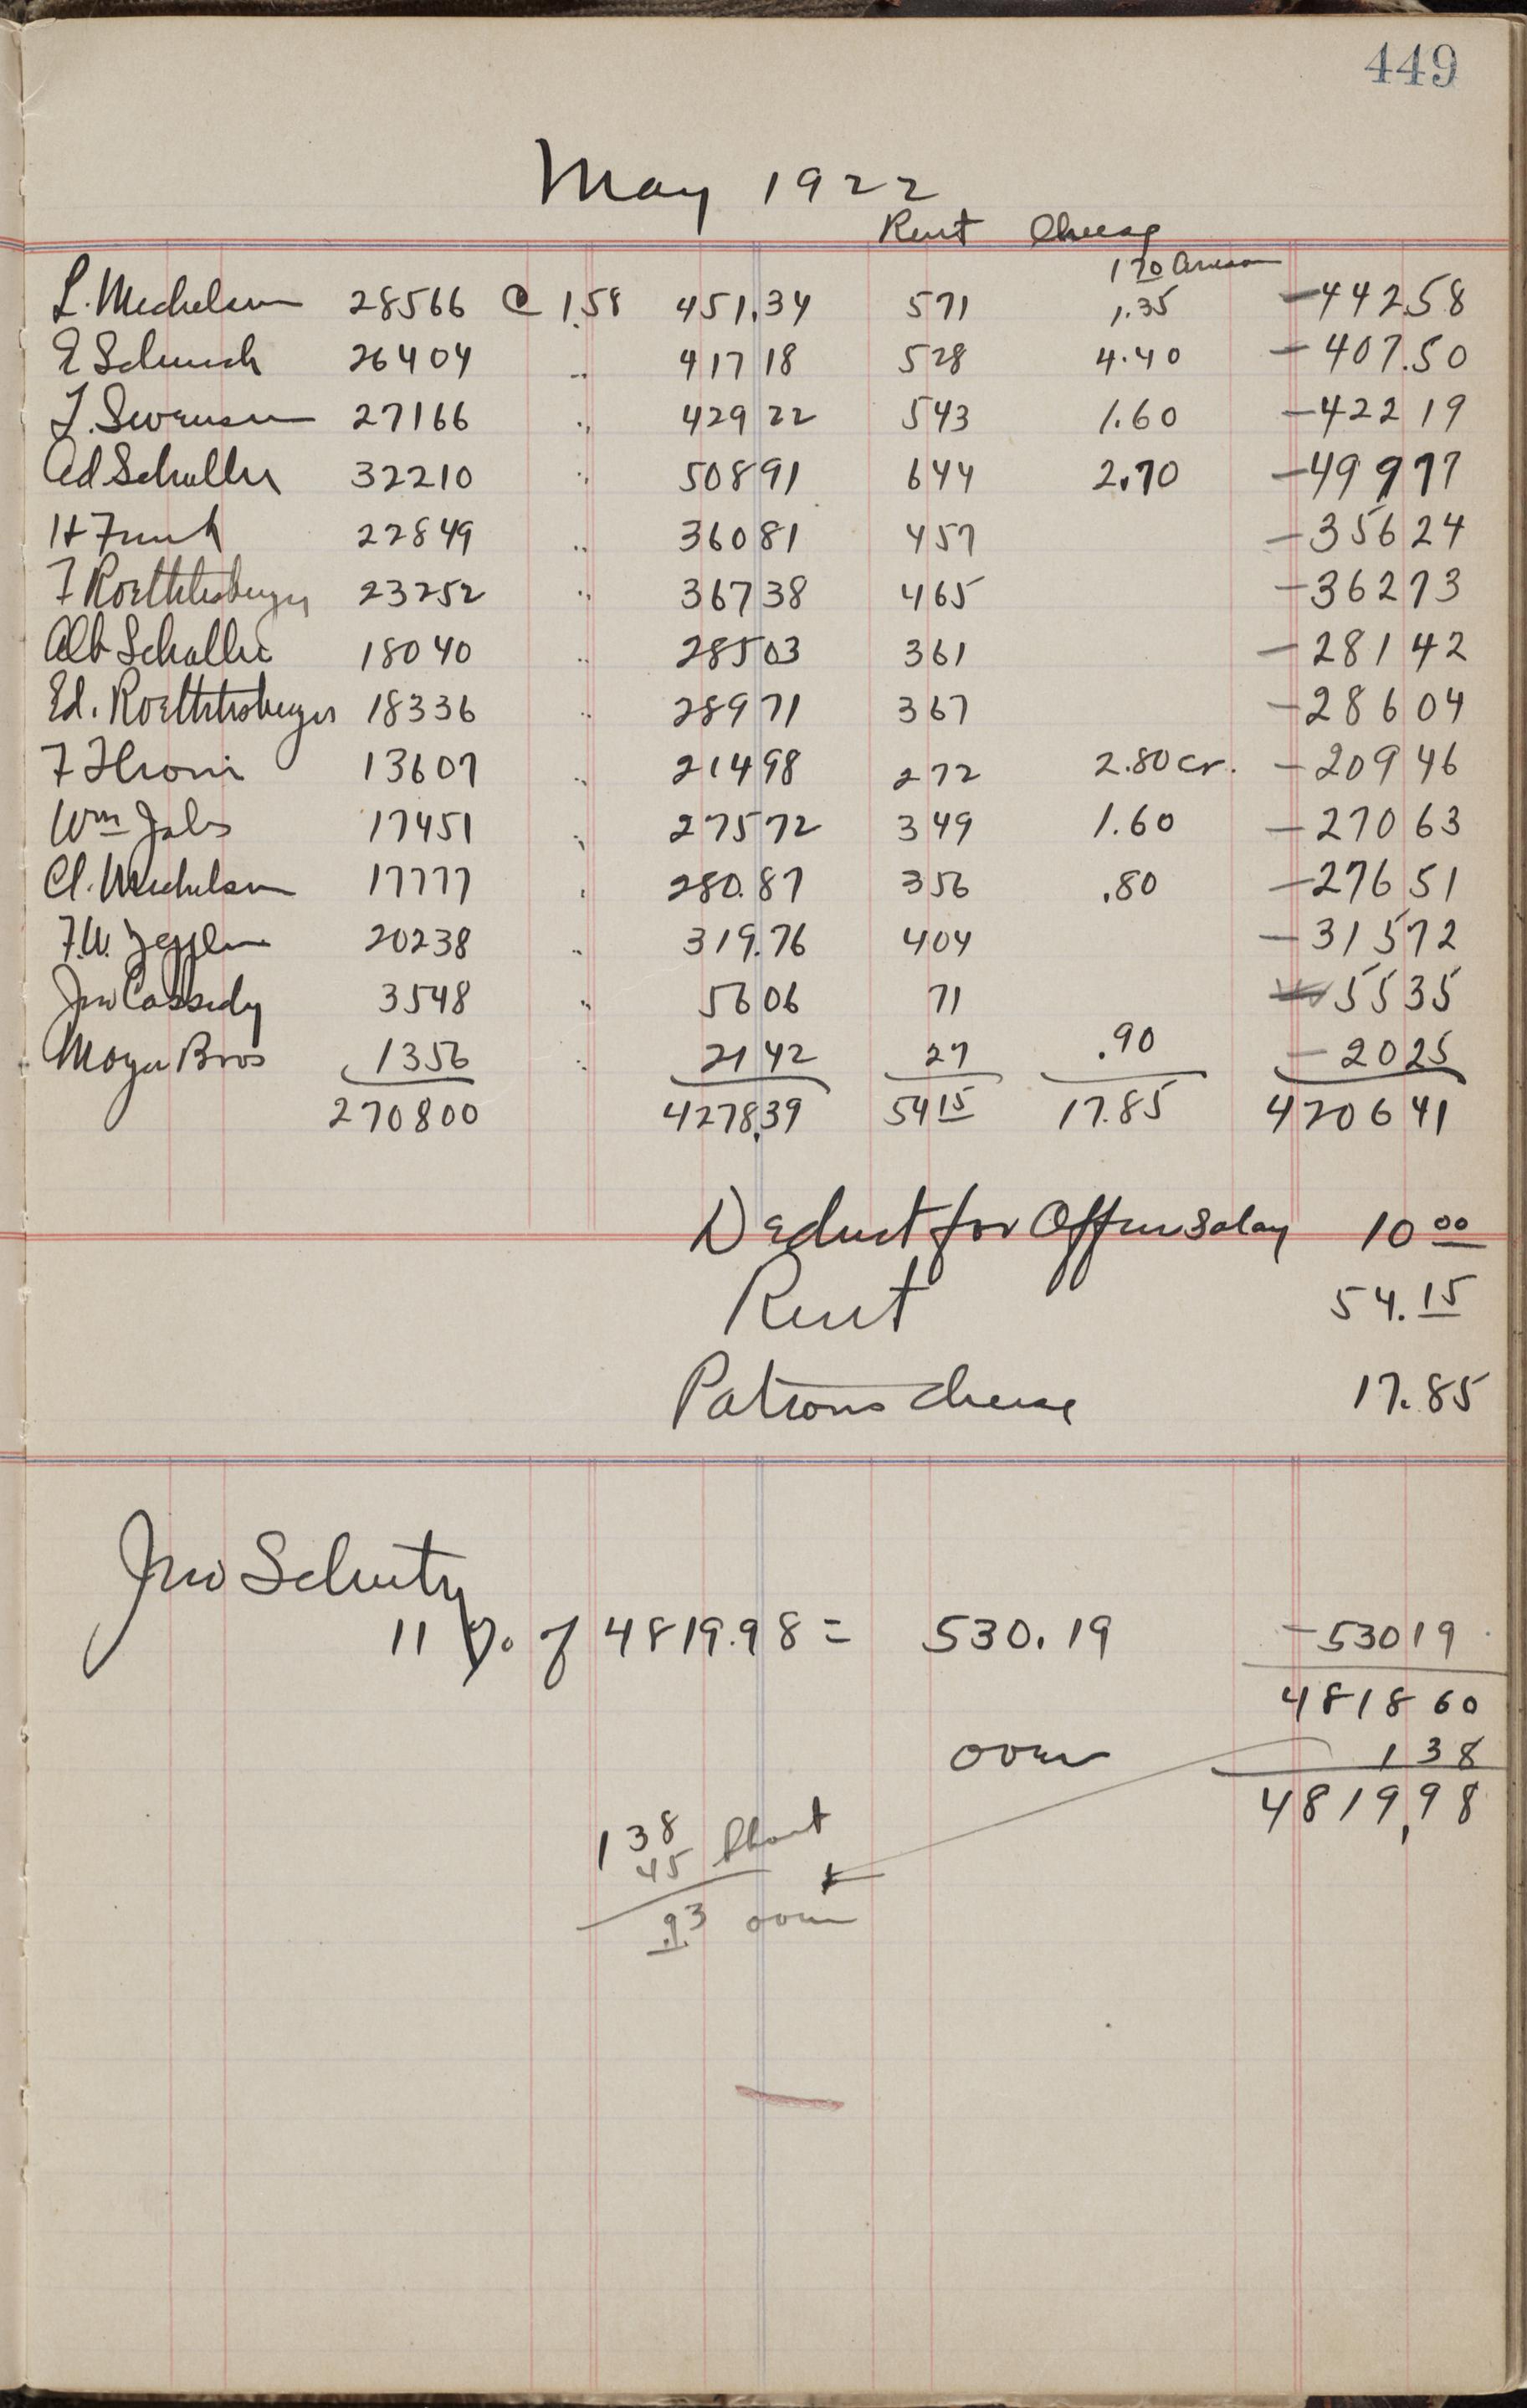 449
May 1922
Rent Cheese
1 20
L. Mechelson 28566 @ 1.58 451.34 571 1.35 -44258
E Schuch 26404 " 417 18 528 4.40 -407.50
27166 " 429 22 543 1.60 -422 19
Ad Schaller 32210 " 508 91 644 2.70 -499 77
H Funk 22849 " 360 81 457 -356 24
F Roethlisberger 23252 " 367 38 465 -362 73
Alb Schaller 18040 " 285 03 361 -281 42
Ed. Roethlisberger 18336 " 289 71 367 -286 04
F 13607 " 214 98 272 2.80 cr. -209 46
Wm Jabs 17451 " 275 72 349 1.60 -270 63
Cl. Mechelson 17777 " 280.87 356 .80 -276 51
F.W. 20238 " 319.76 404 -315 72
Jno Cassidy 3548 " 56 06 71 55 35
Moyer Bros 1356 " 21 42 27 .90 -20 25
270800 4278.39 54 15 17.85 4206 41
Deduct for Officer Salay 10 00
Rent 54.15
Patrons Cheese 17.85
Jno Schutz
11 % of 4819.98 = 530.19 -530 19
4818 60
over 1 38
4819,98
1 38
45 Short
.93 over